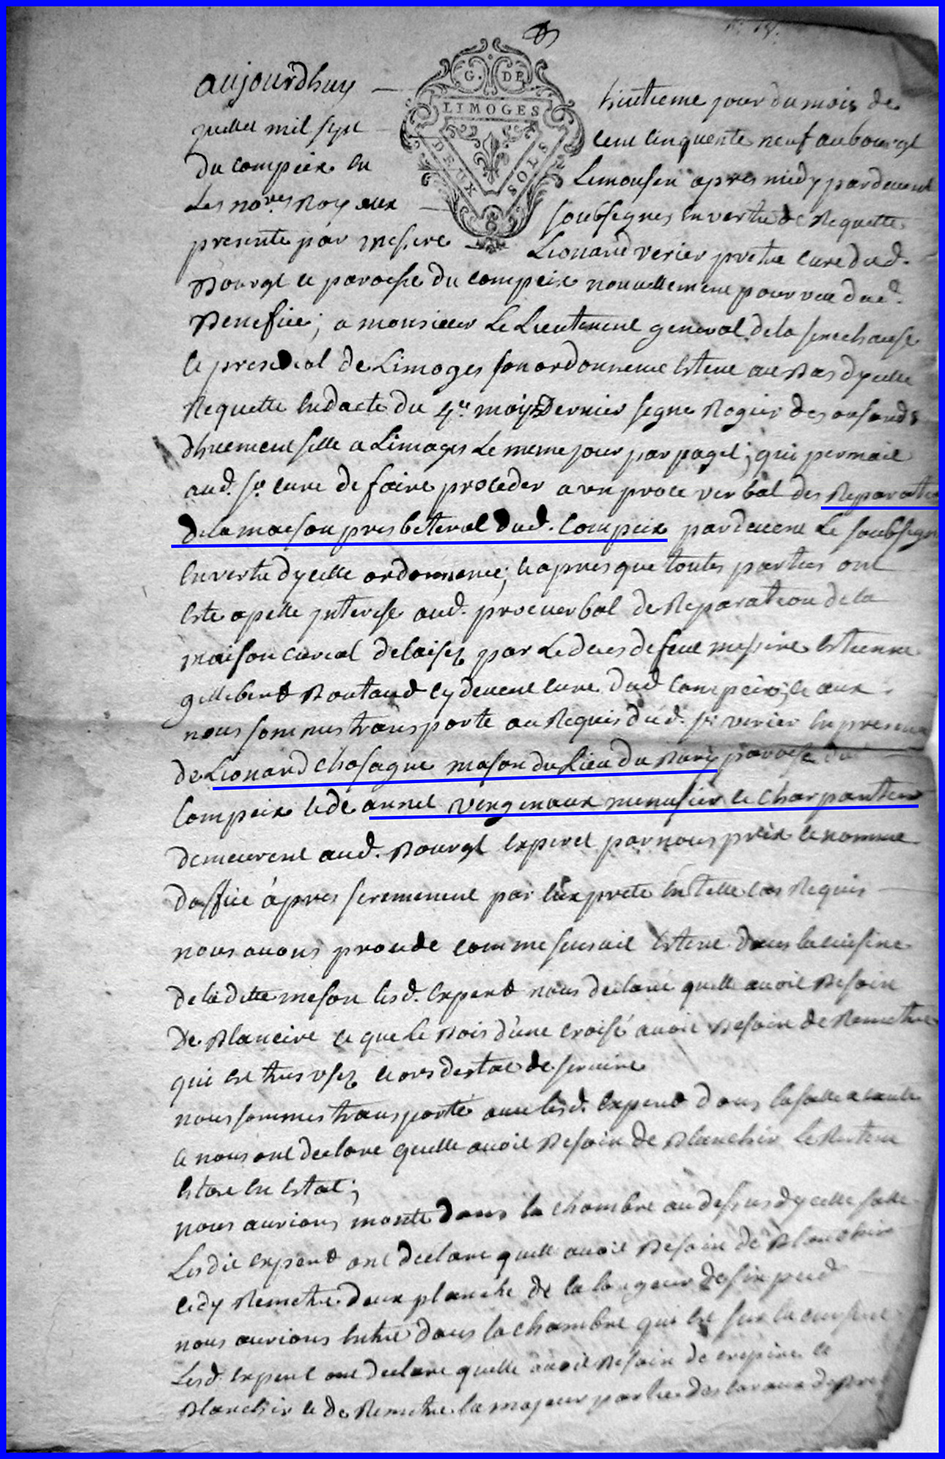 G. DE
LIMOGES
DEUX SOLS
aujourdhuy huitieme jour du mois de
juillet mil sept cent cinquante neuf au bourgt
du compeix en Limousin apres midy pardevant
Les no.res Royaux soubsegnes en vertu de Requette
presenté par messire Lionard verier pretre curé dud.
Bourgt et paroisse du compeix nouvellement pourvue dud.
Benefice; a monsieur Le Lieutenent general de la senechausé
et presidial de Limoges son ordonnence estent au bas dycelle
Requette en dacte du 4.e may dernier segne Rogier des
a Limoges Le meme jour par paget; qui permait
aud. sr. curé de faire proceder a un proce verbal des Reparations
de la maison presbiteral dud. Compeix pardevent Le soubsegne
en vertu dycelle ordonnence; et apres que toutes parties ont
esté apellé aud. proceverbal de Reparation de la
maison curial delaisez par Le deces de feut messire estienne
gillibert Boutaud cy devent curé dud. Compeix; et aux
nous sommes transporté au Requis dud. sr. verier en presence
de Lionard chosagne mason du Lieu du Bury paroisse du
Compeix et de annet vergenaux menusier et charpantier
demeurent aud. Bourgt expert par nous prix et nommé
doffice apres serement par eux preté en telle cas Requis
nous avons procede comme sensuit estent dans la cuisine
de la ditte meson lesd. expert nous declaré quelle avoit Besoin
de Blancire et que le Bois d'une croisé avoit Besoin de Remettre
qui est tres usez et ors destat de servire
nous sommes transporté avec lesd. expert dans la salle a
et nous ont declaré quelle avoit Besoin de Blanchir Le Restent
estan en estat;
nous aurions monté dans la chambre au desus dycelle salle
Lesdit expert ont declaré quelle avoit Besoin de Blanchir
et dy Remettre deux planche de la longeur de six pied
nous aurions entré dans la chambre qui est sur la cuisine
Lesd. expert ont declaré quelle avoit Besoin de crepire et
Blanchir et de Remettre la majeur partie des